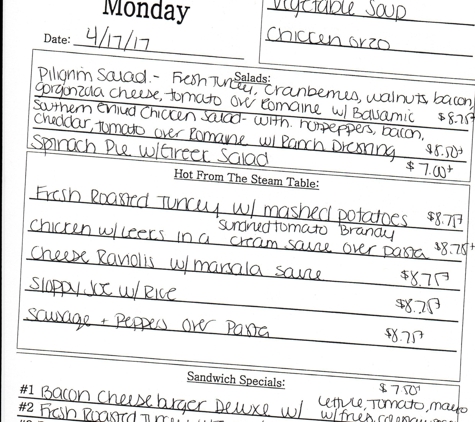 Monday
Vegetable Soup
Date: 4/17/17
Chicken orzo
Salads:
Pilgrim Salad - Fresh Turkey, Cranberries, walnuts, bacon,
gorgonzola cheese, tomato over Romaine w/ Balsamic $8.75+
Southern Fried Chicken Salad - with hot peppers, bacon,
cheddar, tomato over Romaine w/ Ranch Dressing $8.50+
Spinach Pie w/ Greek Salad $7.00+
Hot From The Steam Table:
Fresh Roasted Turkey w/ mashed potatoes $8.75+
Chicken w/ leeks in a sundried tomato Brandy
cream sauce over pasta $8.75+
Cheese Raviolis w/ marsala sauce $8.75+
Sloppy Joe w/ Rice $8.75+
Sausage + Peppers over Pasta $8.75+
Sandwich Specials:
$7.50+
#1 Bacon Cheeseburger Deluxe w/ lettuce, tomato, mayo
#2 Fresh Roasted w/ fries,